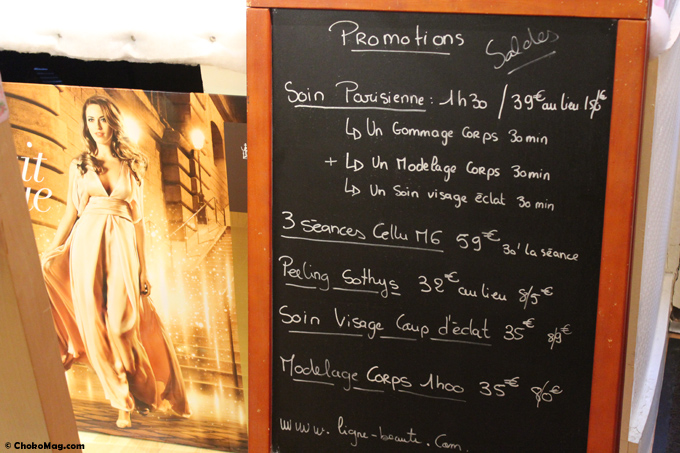 Promotions
Soldes
Soin Parisienne : 1h30 / 39€ au lieu
↳ Un Gommage Corps 30 min
+ ↳ Un Modelage Corps 30 min
↳ Un Soin visage éclat 30 min
3 séances Cellu M6 59€ 30' la séance
Peeling Sothys 32€ au lieu 85€
Soin Visage Coup d'éclat 35€
Modelage Corps 1h00 35€ 80€
www.ligne-beaute.com
© ChokoMag.com